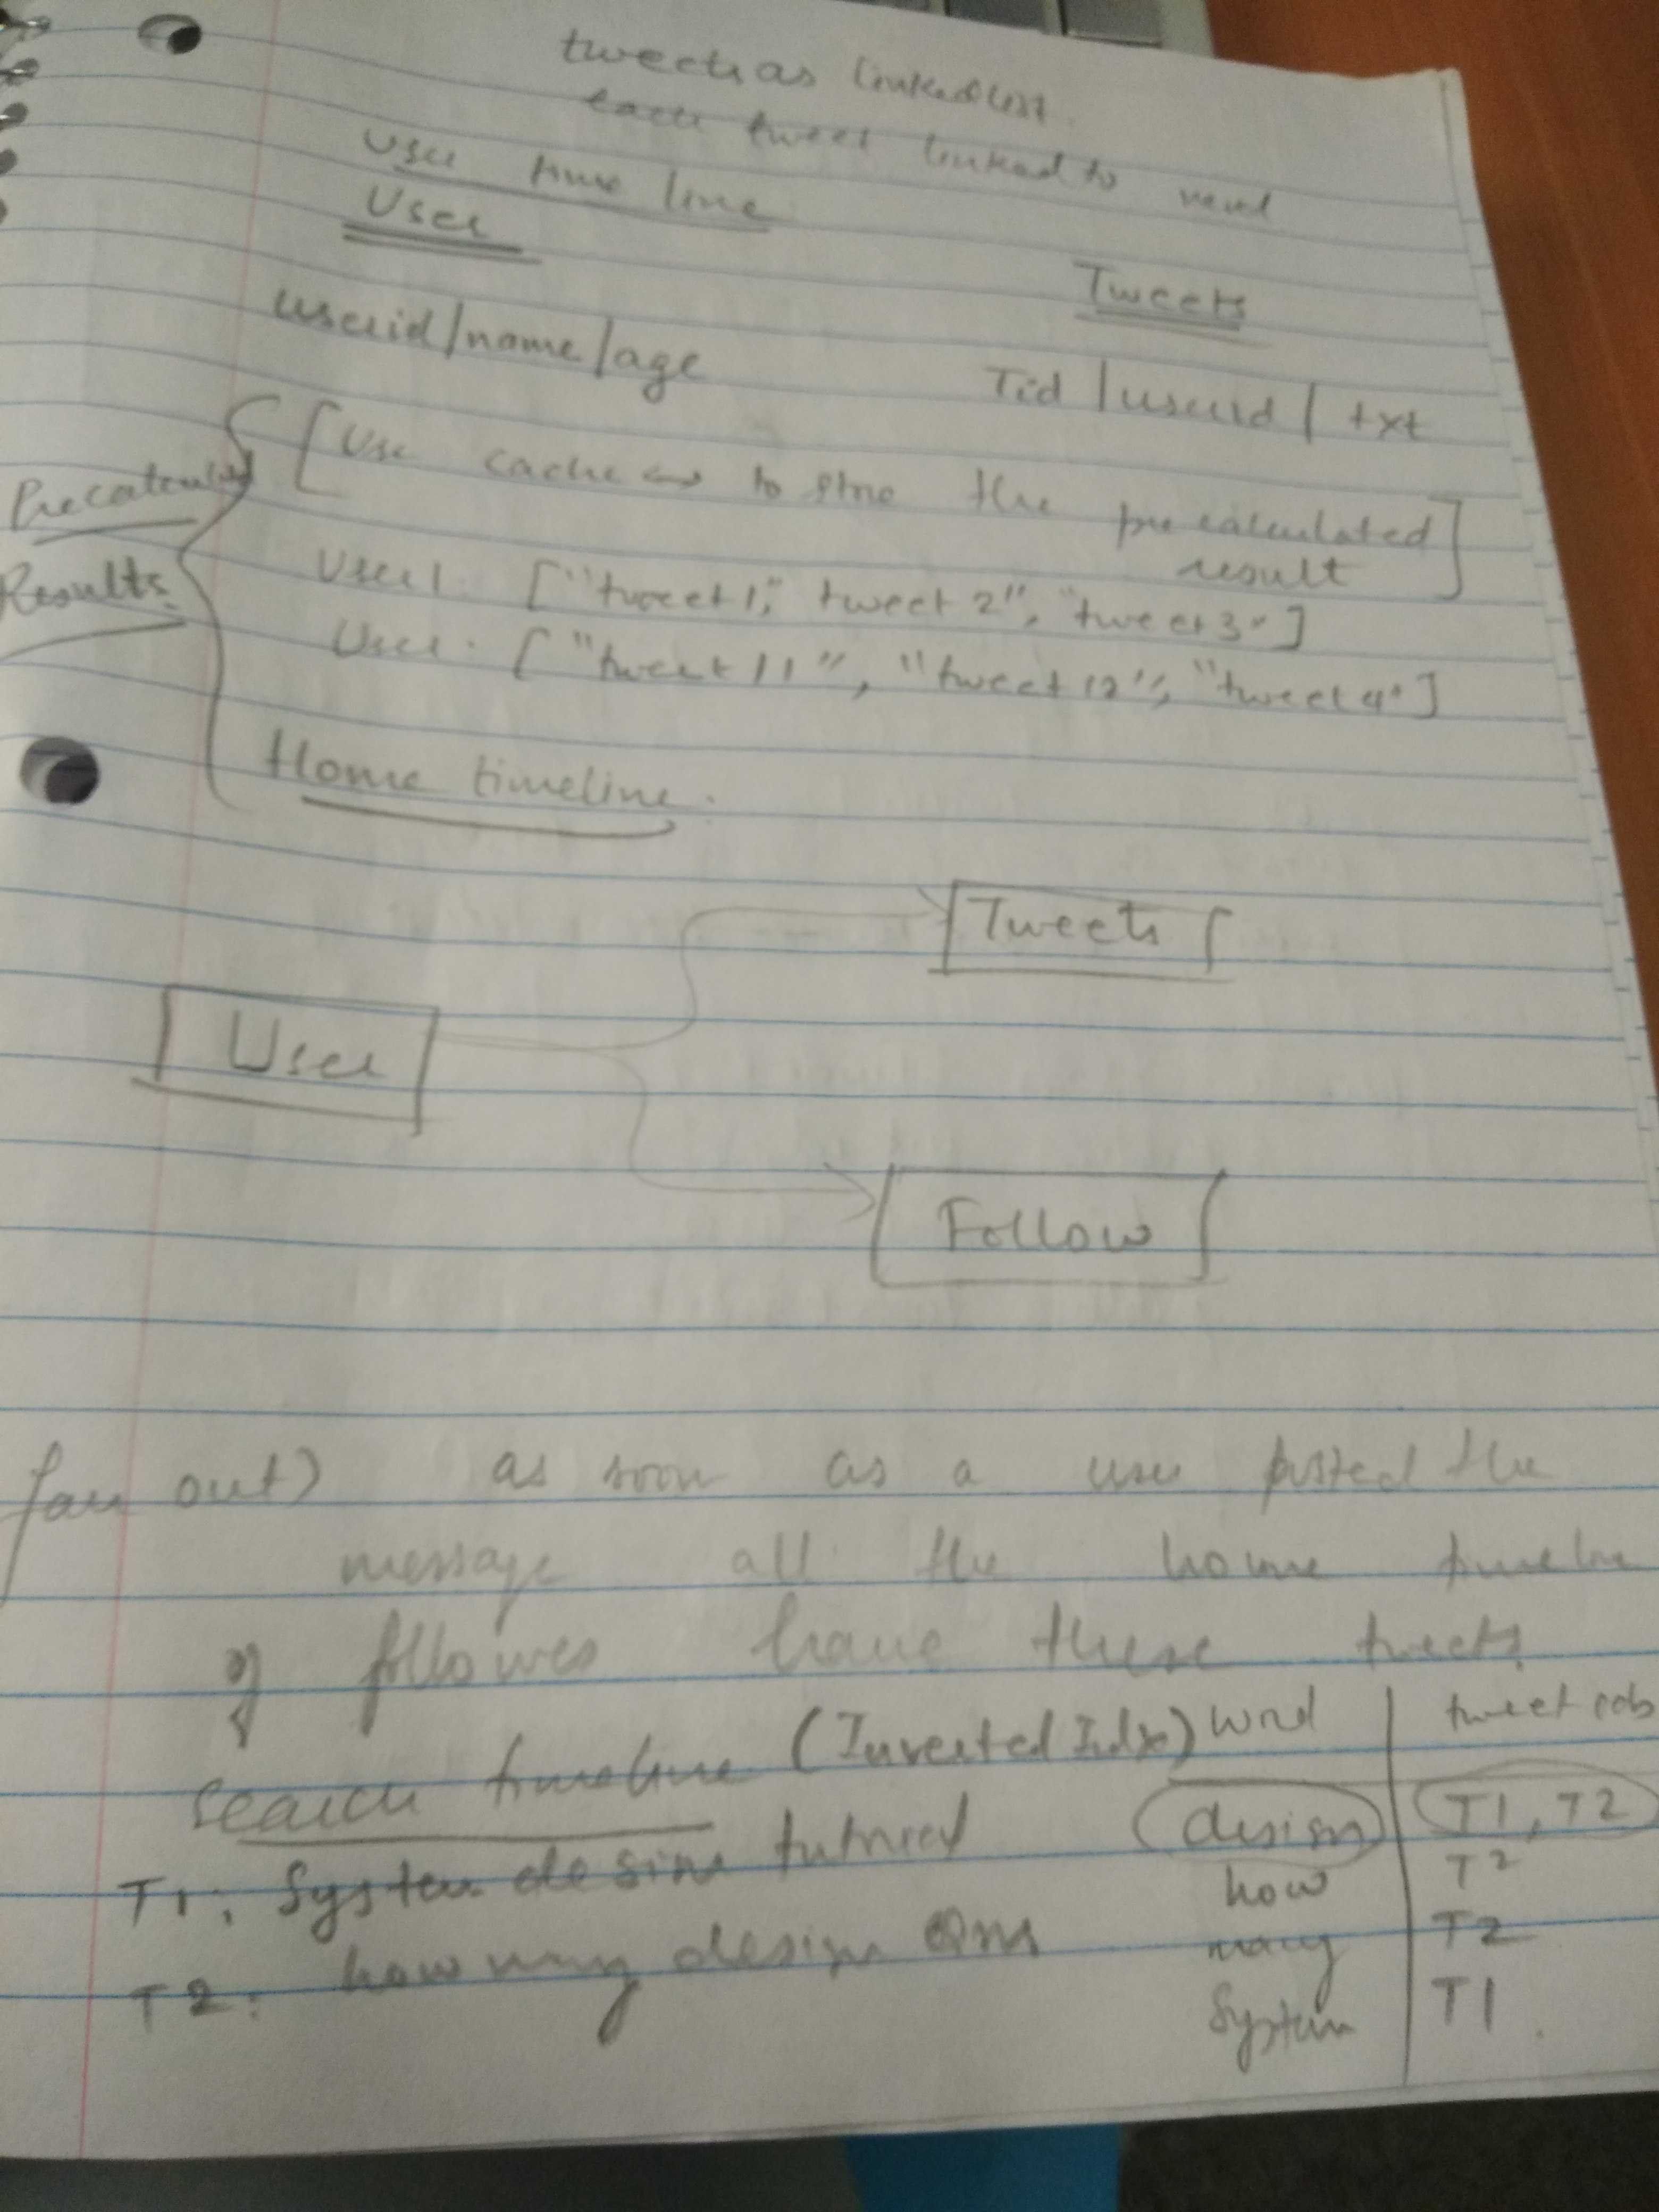 tweets as linked list.
each tweet linked to next
User time line
User
Tweets
userid/name/age
Tid | userid | txt
Precalculated
Results.
[Use cache to store the precalculated
result]
User1. ["tweet1", tweet 2", "tweet3"]
User. ["tweet 11", "tweet 12", "tweet4"]
Home timeline.
Tweets
User
Follow
fan out) as soon as a user posted the
message all the home timeline
of followers have these tweets
Search timeline (Inverted Idx)
Word | tweet
T1: System design tutorial
T2: how many design Qns
design | T1, T2
how | T2
many | T2
System | T1